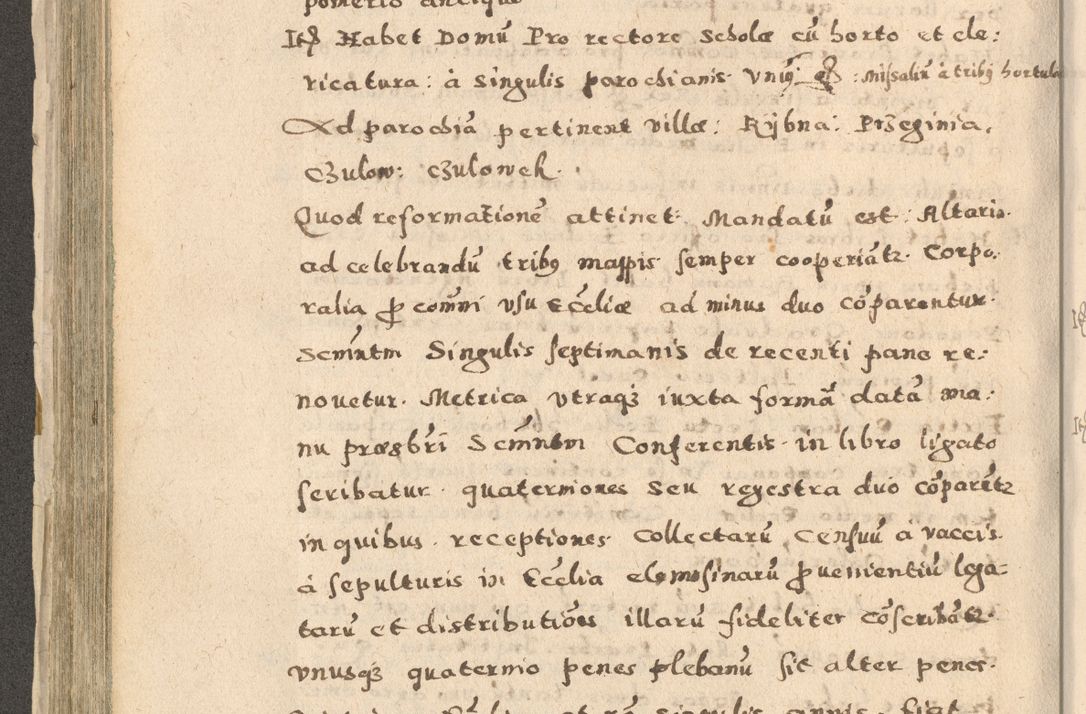 pomerio antiquo
Itē Habet Domū Pro rectore Scholæ cū horto et cle:
ricatura: à singulis parochianis unius : Missaliū à tribȝ hortula
Ad parochiā pertinent villæ: Rÿbna: Przeginia,
Czulow: Czulowek.
Quod reformationē attinet: Mandatū est: Altaria
ad celebrandū tribȝ mappis semper cooperiātz. Corpo,
ralia ꝓ com̄ni vsu Eccliæ ad minus duo cōparentur.
Scm̄ntm Singulis septimanis de recenti pane re:
nouetur. Metrica vtraqȝ iuxta formā datā ma:
nu præsbr̄i Scm̄ntm Conferentis in libro ligato
scribatur. quaterniones Seu regestra duo cōparētz
in quibus. receptiones. Collectarū, Censuū à vaccis.
à sepulturis in Ecclia elemosinarū ꝓuenientiū lega:
tarū et distributiōes illarū fideliter cōscribātz.
vnusqȝ quaternio penes plebanū sit alter penes.
et singulis annis. fiat